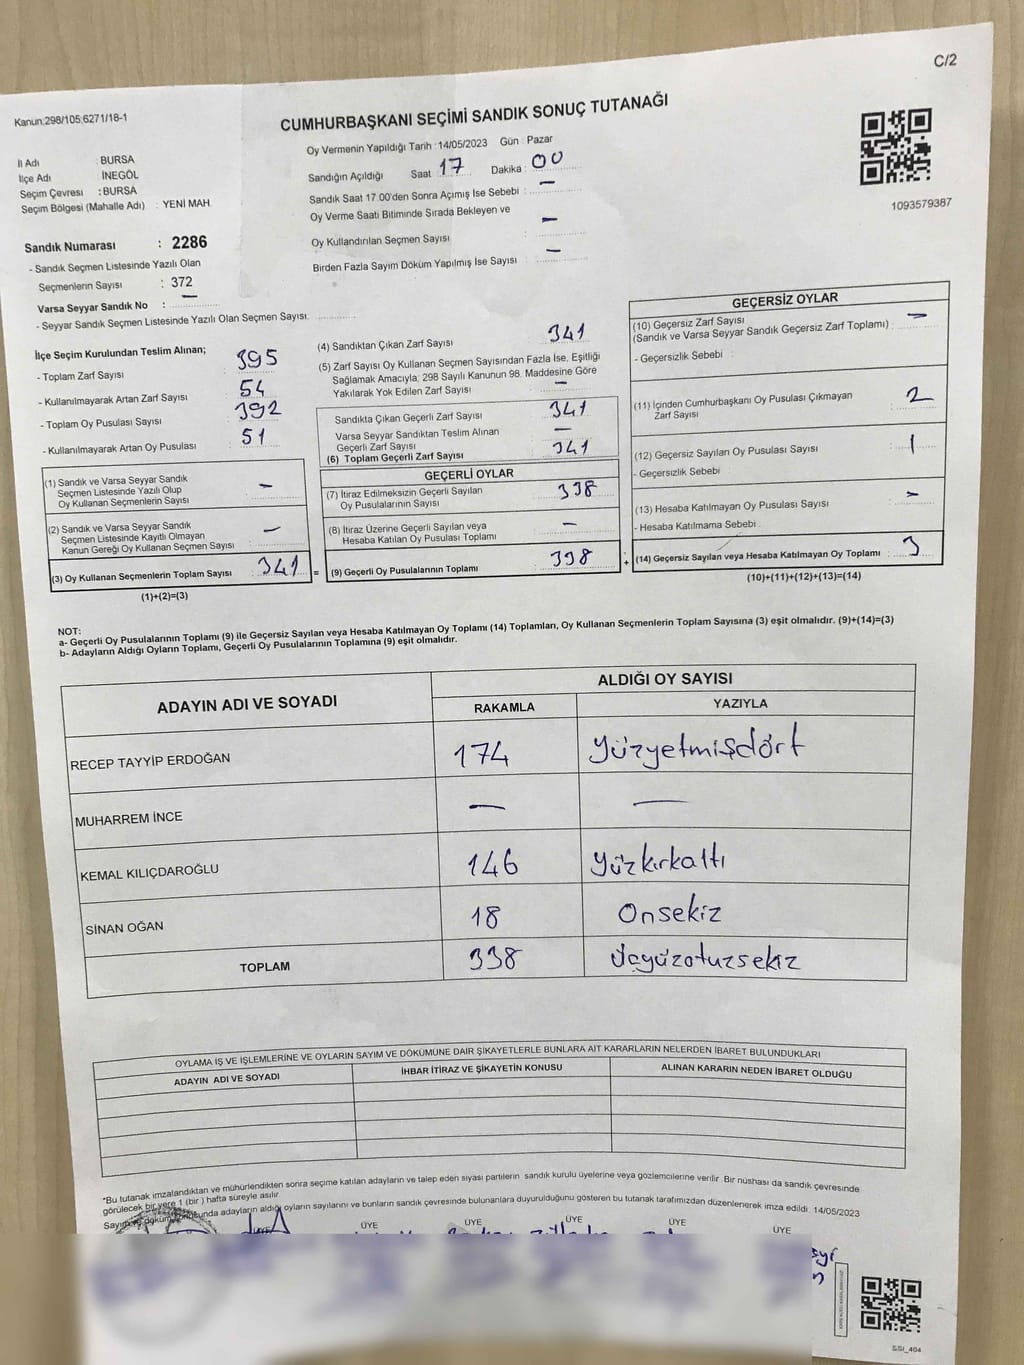 C/2
Kanun:298/105;6271/18-1
CUMHURBAŞKANI SEÇİMİ SANDIK SONUÇ TUTANAĞI
1093579387
İl Adı : BURSA
İlçe Adı : İNEGÖL
Seçim Çevresi : BURSA
Seçim Bölgesi (Mahalle Adı) : YENİ MAH.
Oy Vermenin Yapıldığı Tarih : 14/05/2023 Gün : Pazar
Sandığın Açıldığı Saat : 17 Dakika : 00
Sandık Saat 17.00'den Sonra Açımış İse Sebebi : –
Oy Verme Saati Bitiminde Sırada Bekleyen ve
Oy Kullandırılan Seçmen Sayısı : –
Birden Fazla Sayım Döküm Yapılmış İse Sayısı : –
Sandık Numarası : 2286
- Sandık Seçmen Listesinde Yazılı Olan
Seçmenlerin Sayısı : 372
Varsa Seyyar Sandık No : –
- Seyyar Sandık Seçmen Listesinde Yazılı Olan Seçmen Sayısı:
İlçe Seçim Kurulundan Teslim Alınan;
- Toplam Zarf Sayısı : 395
- Kullanılmayarak Artan Zarf Sayısı : 54
- Toplam Oy Pusulası Sayısı : 392
- Kullanılmayarak Artan Oy Pusulası : 51
(1) Sandık ve Varsa Seyyar Sandık
Seçmen Listesinde Yazılı Olup
Oy Kullanan Seçmenlerin Sayısı : –
(2) Sandık ve Varsa Seyyar Sandık
Seçmen Listesinde Kayıtlı Olmayan
Kanun Gereği Oy Kullanan Seçmen Sayısı : –
(3) Oy Kullanan Seçmenlerin Toplam Sayısı : 341 =
(1)+(2)=(3)
(4) Sandıktan Çıkan Zarf Sayısı : 341
(5) Zarf Sayısı Oy Kullanan Seçmen Sayısından Fazla İse, Eşitliği
Sağlamak Amacıyla; 298 Sayılı Kanunun 98. Maddesine Göre
Yakılarak Yok Edilen Zarf Sayısı : –
Sandıkta Çıkan Geçerli Zarf Sayısı : 341
Varsa Seyyar Sandıktan Teslim Alınan
Geçerli Zarf Sayısı : –
(6) Toplam Geçerli Zarf Sayısı : 341
GEÇERLİ OYLAR
(7) İtiraz Edilmeksizin Geçerli Sayılan
Oy Pusulalarının Sayısı : 338
(8) İtiraz Üzerine Geçerli Sayılan veya
Hesaba Katılan Oy Pusulası Toplamı : –
(9) Geçerli Oy Pusulalarının Toplamı : 338 +
GEÇERSİZ OYLAR
(10) Geçersiz Zarf Sayısı
(Sandık ve Varsa Seyyar Sandık Geçersiz Zarf Toplamı) : –
- Geçersizlik Sebebi :
(11) İçinden Cumhurbaşkanı Oy Pusulası Çıkmayan
Zarf Sayısı : 2
(12) Geçersiz Sayılan Oy Pusulası Sayısı : 1
- Geçersizlik Sebebi :
(13) Hesaba Katılmayan Oy Pusulası Sayısı : –
- Hesaba Katılmama Sebebi :
(14) Geçersiz Sayılan veya Hesaba Katılmayan Oy Toplamı : 3
(10)+(11)+(12)+(13)=(14)
NOT:
a- Geçerli Oy Pusulalarının Toplamı (9) ile Geçersiz Sayılan veya Hesaba Katılmayan Oy Toplamı (14) Toplamları, Oy Kullanan Seçmenlerin Toplam Sayısına (3) eşit olmalıdır. (9)+(14)=(3)
b- Adayların Aldığı Oyların Toplamı, Geçerli Oy Pusulalarının Toplamına (9) eşit olmalıdır.
ADAYIN ADI VE SOYADI
ALDIĞI OY SAYISI
RAKAMLA YAZIYLA
RECEP TAYYİP ERDOĞAN 174 Yüzyetmişdört
MUHARREM İNCE – –
KEMAL KILIÇDAROĞLU 146 Yüzkırkaltı
SİNAN OĞAN 18 Onsekiz
TOPLAM 338 Üçyüzotuzsekiz
OYLAMA İŞ VE İŞLEMLERİNE VE OYLARIN SAYIM VE DÖKÜMÜNE DAİR ŞİKAYETLERLE BUNLARA AİT KARARLARIN NELERDEN İBARET BULUNDUKLARI
ADAYIN ADI VE SOYADI İHBAR İTİRAZ VE ŞİKAYETİN KONUSU ALINAN KARARIN NEDEN İBARET OLDUĞU
*Bu tutanak imzalandıktan ve mühürlendikten sonra seçime katılan adayların ve talep eden siyasi partilerin sandık kurulu üyelerine veya gözlemcilerine verilir. Bir nüshası da sandık çevresinde
görülecek bir yere 1 (bir) hafta süreyle asılır.
Sayım ve döküm sonucunda adayların aldığı oyların sayılarını ve bunların sandık çevresinde bulunanlara duyurulduğunu gösteren bu tutanak tarafımızdan düzenlenerek imza edildi. 14/05/2023
ÜYE ÜYE ÜYE ÜYE ÜYE ÜYE
SSİ_404